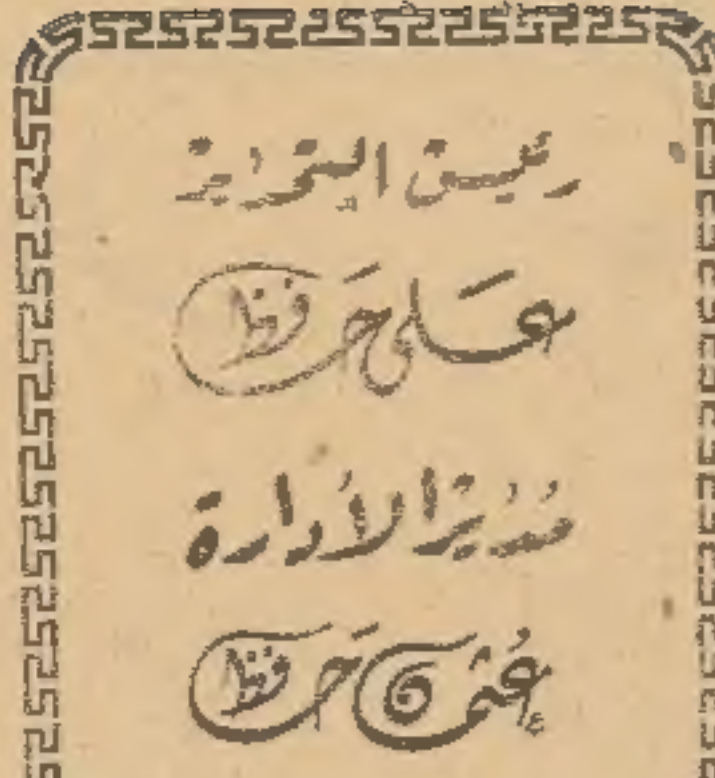 رئيس التحرير
علي حافظ
مدير الأدارة
عثمان حافظ